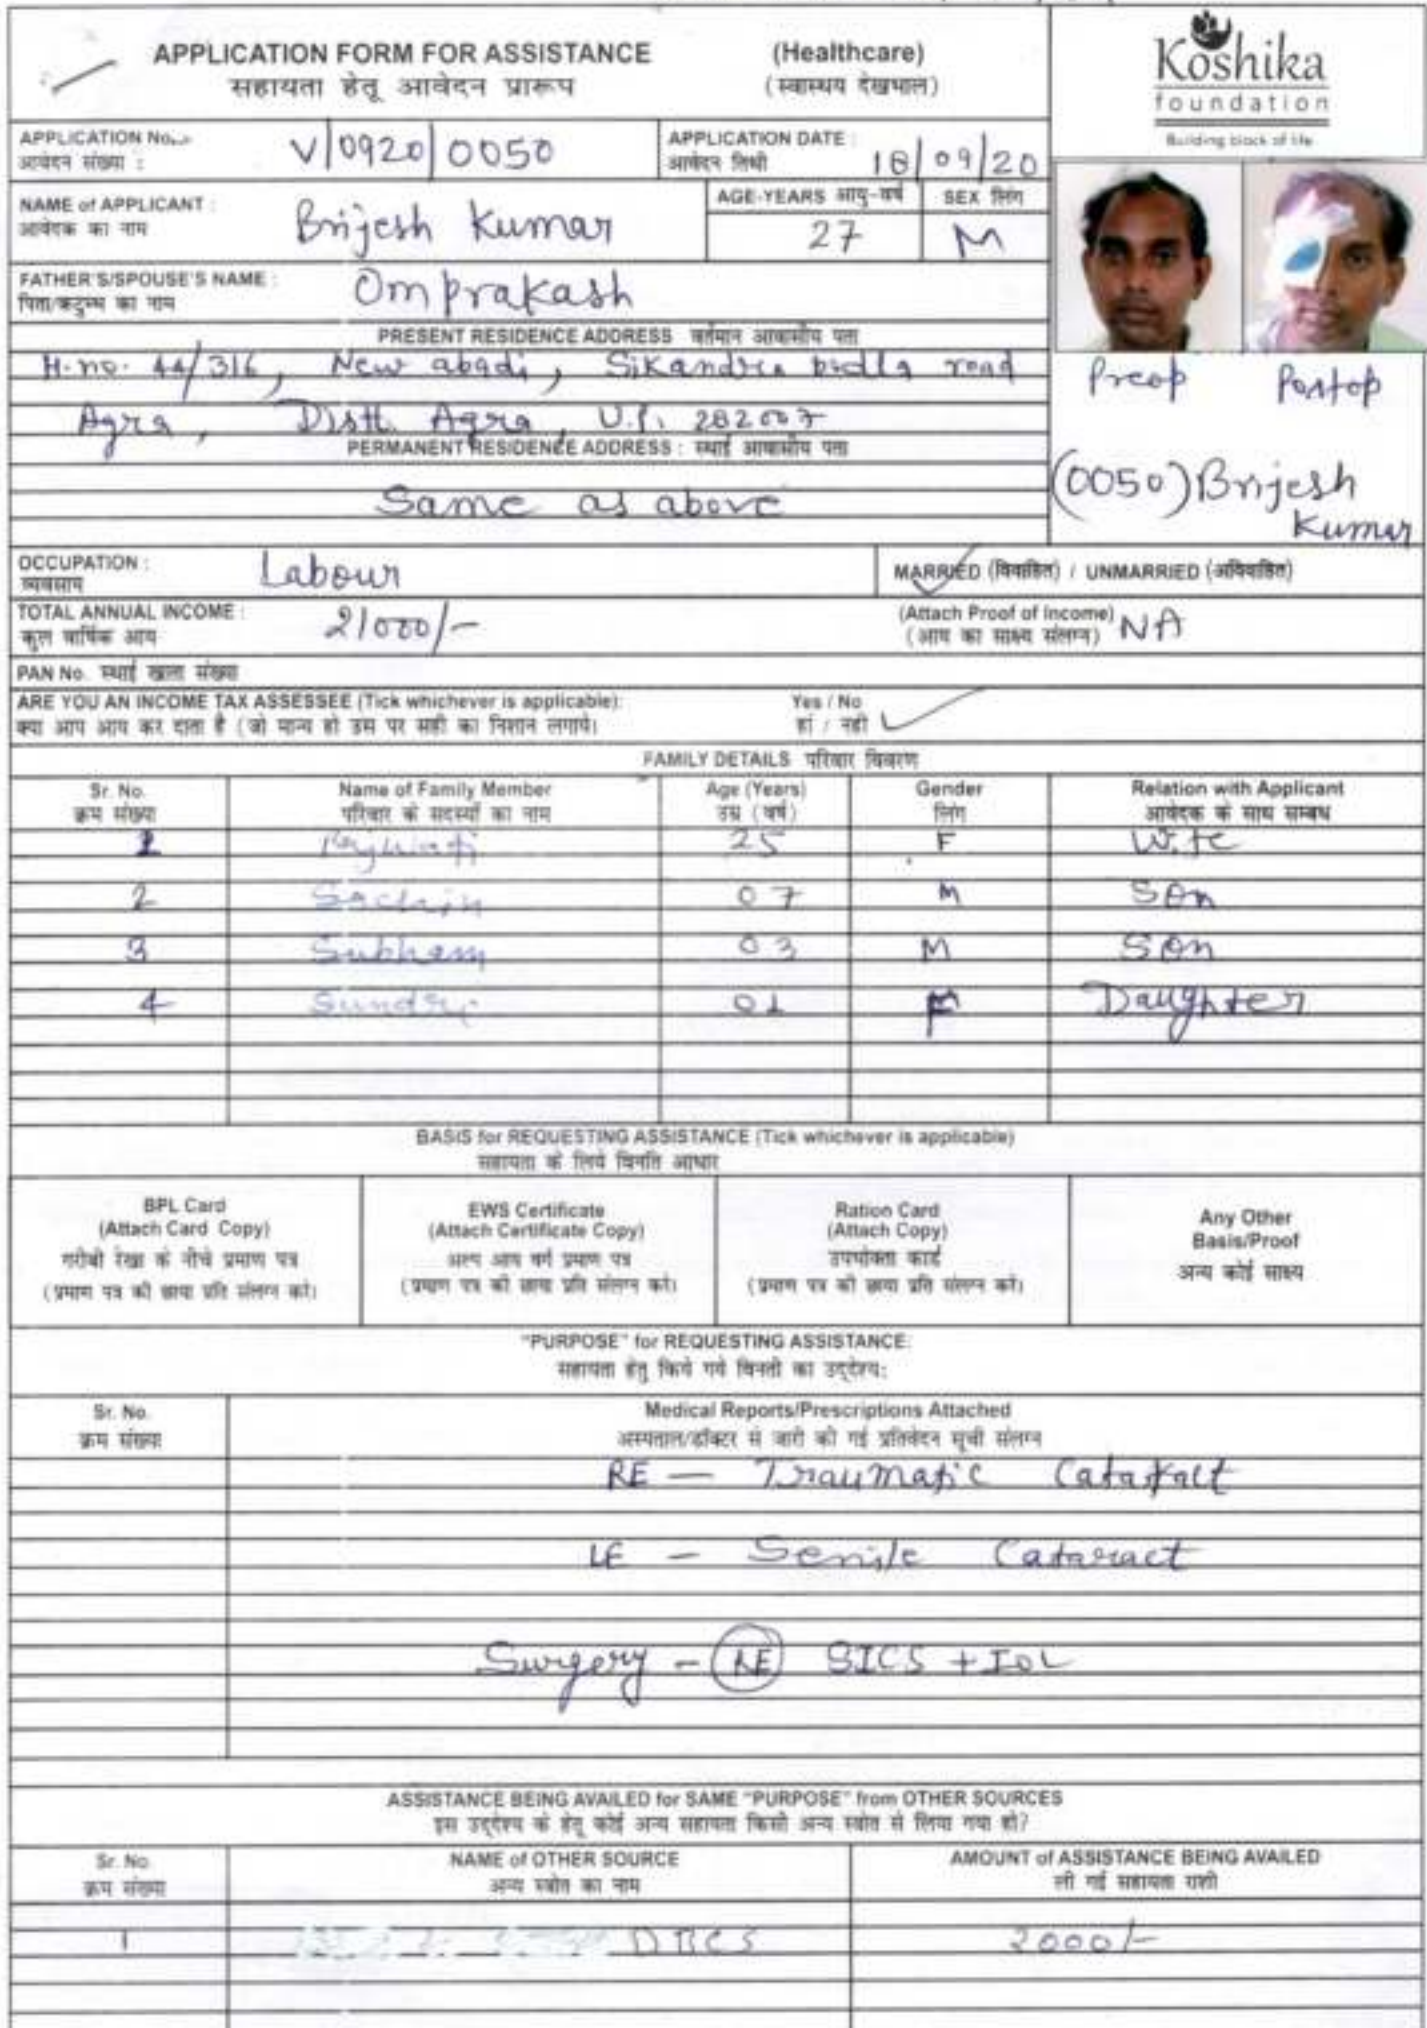 APPLICATION FORM FOR ASSISTANCE (Healthcare)
सहायता हेतू आवेदन प्रारूप (स्वास्थय देखभाल)
Koshika
foundation
Building block of life
APPLICATION No.
आवेदन संख्या :
V/0920/0050
APPLICATION DATE :
आवेदन तिथी
18/09/20
NAME of APPLICANT :
आवेदक का नाम
Brijesh Kumar
AGE-YEARS आयु-वर्ष
27
SEX लिंग
M
FATHER'S/SPOUSE'S NAME :
पिता/कटुम्ब का नाम
Omprakash
PRESENT RESIDENCE ADDRESS वर्तमान आवासीय पता
H.no. 44/316, New abadi, Sikandra bodla road
Agra, Distt. Agra, U.P. 282007
PERMANENT RESIDENCE ADDRESS : स्थाई आवासीय पता
Same as above
Preop Postop
(0050) Brijesh
Kumar
OCCUPATION :
व्यवसाय
Labour
MARRIED (विवाहित) / UNMARRIED (अविवाहित)
TOTAL ANNUAL INCOME :
कुल वार्षिक आय
21000/-
(Attach Proof of Income)
(आय का साक्ष्य संलग्न)
NA
PAN No. स्थाई खाता संख्या
ARE YOU AN INCOME TAX ASSESSEE (Tick whichever is applicable): Yes / No
क्या आप आय कर दाता है (जो मान्य हो उस पर सही का निशान लगाये। हां / नही
FAMILY DETAILS परिवार विवरण
Sr. No. Name of Family Member Age (Years) Gender Relation with Applicant
क्रम संख्या परिवार के सदस्यों का नाम उम्र (वर्ष) लिंग आवेदक के साथ सम्बध
1 25 F Wife
2 Sachin 07 M Son
3 Subham 03 M Son
4 Sundri 01 F Daughter
BASIS for REQUESTING ASSISTANCE (Tick whichever is applicable)
सहायता के लिये विनति आधार
BPL Card
(Attach Card Copy)
गरीबी रेखा के नीचे प्रमाण पत्र
(प्रमाण पत्र की छाया प्रति संलग्न करें।
EWS Certificate
(Attach Certificate Copy)
अल्प आय वर्ग प्रमाण पत्र
(प्रमाण पत्र की छाया प्रति संलग्न करें।
Ration Card
(Attach Copy)
उपभोक्ता कार्ड
(प्रमाण पत्र की छाया प्रति संलग्न करें।
Any Other
Basis/Proof
अन्य कोई साक्ष्य
"PURPOSE" for REQUESTING ASSISTANCE:
सहायता हेतु किये गये विनती का उद्देश्य:
Sr. No. Medical Reports/Prescriptions Attached
क्रम संख्या अस्पताल/डॉक्टर से जारी की गई प्रतिवेदन सूची संलग्न
RE — Traumatic Cataract
LE — Senile Cataract
Surgery - RE SICS + IOL
ASSISTANCE BEING AVAILED for SAME "PURPOSE" from OTHER SOURCES
इस उद्देश्य के हेतू कोई अन्य सहायता किसी अन्य स्त्रोत से लिया गया हो?
Sr. No. NAME of OTHER SOURCE AMOUNT of ASSISTANCE BEING AVAILED
क्रम संख्या अन्य स्त्रोत का नाम ली गई सहायता राशी
1 DBCS 2000/-